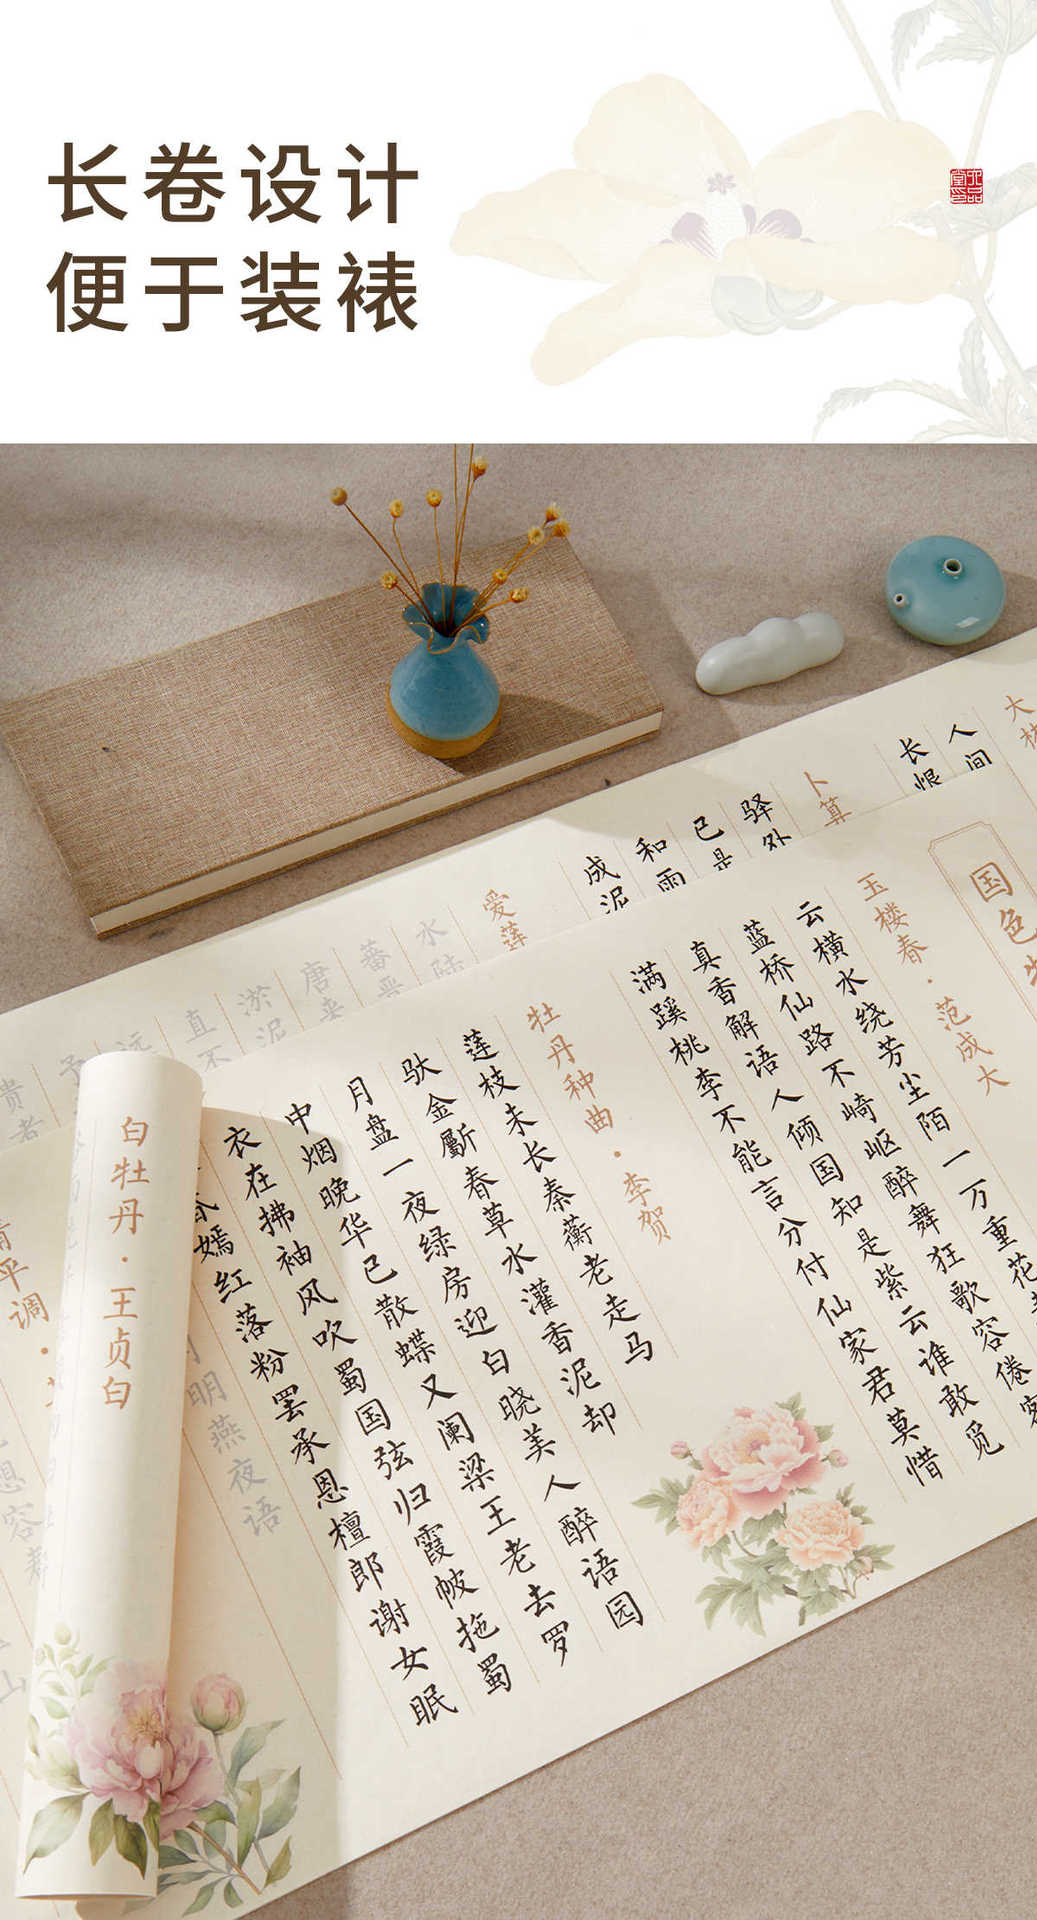 长卷设计
便于装裱
大林
人间
长恨
卜算
驿外
已是
和雨
成泥
爱莲
水陆
蕃
唐来
淤泥
直不
远
予
贵者
国色
玉楼春·范成大
云横水绕芳尘陌一万重花
蓝桥仙路不崎岖醉舞狂歌容倦客
真香解语人倾国知是紫云谁敢觅
满蹊桃李不能言分付仙家君莫惜
牡丹种曲·李贺
莲枝未长秦蘅老走马
驮金斸春草水灌香泥却
月盘一夜绿房迎白晓美人醉语园
中烟晚华已散蝶又阑梁王老去罗
衣在拂袖风吹蜀国弦归霞帔拖蜀
嫣红落粉罢承恩檀郎谢女眠
明燕夜语
白牡丹·王贞白
平调·
想容